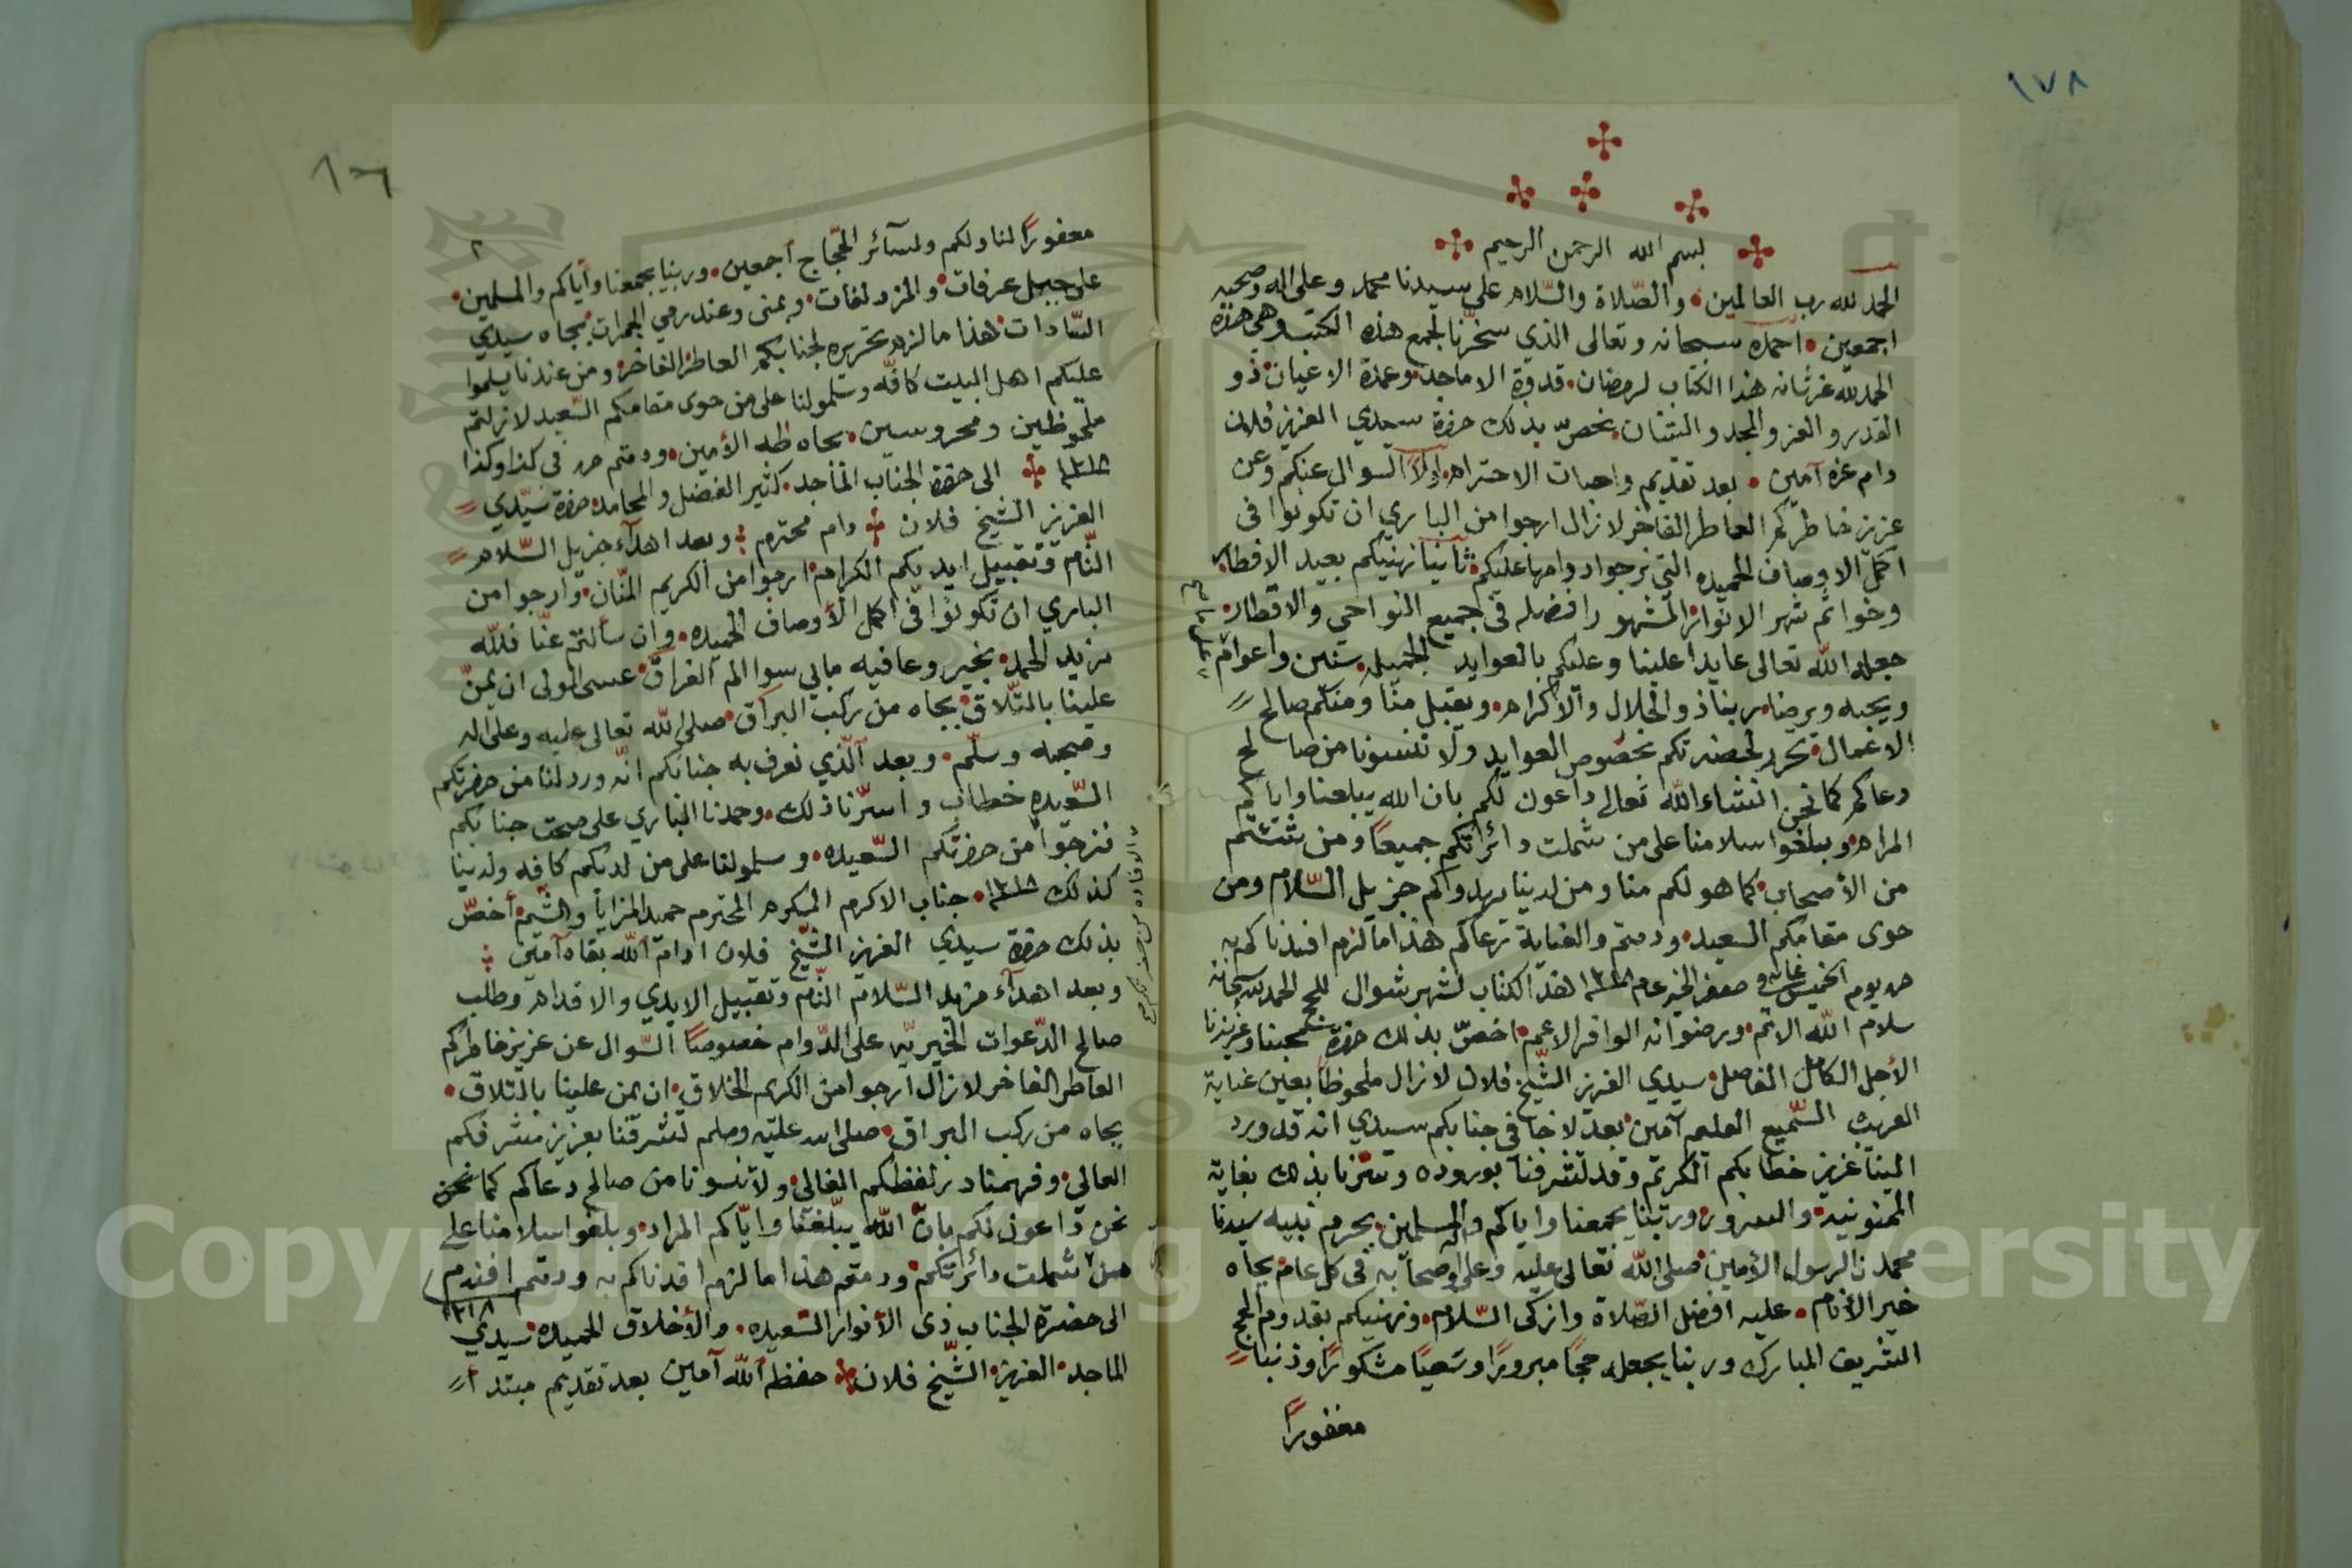 ١٧٨
بسم الله الرحمن الرحيم
الحمد لله رب العالمين والصّلاة والسّلام على سيدنا محمد وعلى اله وصحبه
اجمعين احمده سبحانه وتعالى الذي سخّرنا لجمع هذه الكتب وهي هذه
الحمد لله عز شانه هذا الكتاب لرمضان قدوة الاماجد وعمدة الاعيان ذو
القدر والعز والمجد والتبيان نخصّ بذلك حضرة سيدي العزيز فلان
دام عزه آمين بعد تقديم واجبات الاحترام اولاً السوال عنكم وعن
عزيز خاطركم العاطر الفاخر لا نزال ارجوا من الباري ان تكونوا في
اكمل الاوصاف الحميده التي نرجوا دوامها عليكم ثانيا نهنيكم بعيد الافطار
وخواتم شهر الانوار المشهور افضله في جميع النواحي والاقطار
جعله الله تعالى عايدا علينا وعليكم بالعوايد الجميله سنين واعوام
ويحبه ويرضا ربنا ذو الجلال والاكرام ويقبل منّا ومنكم صالح
الاعمال تحرر لحضرتكم بخصوص العوايد ولا تنسونا من صالح
دعاكم كما نحن انشاء الله تعالى داعون لكم بان الله يبلغنا واياكم
المرام وبلغوا سلامنا على من شملت دائرتكم جميعاً ومن
من الأصحاب كما هو لكم منا ومن لدينا يهدواكم جزيل السّلام ومن
حوى مقامكم السعيد ودمتم والعناية ترعاكم هذا ما لزم افدناكم به
حرر يوم الخميس غاية صفر الخير عام ١٣١٨ هذا الكتاب لشهر شوال للحج الحمد لله سبحانه
سلام الله الاتم ورضوانه الوافر الاعم اخصّ بذلك حضرة محبنا وعزيزنا
الأجل الكامل الفاضل سيدي العزيز الشّيخ فلان لا زال ملحوظاً بعين عناية
السّميع العليم آمين بعد لا خفا في جنابكم سيدي انه قد ورد
الينا عزيز خطابكم الكريم وقد تشرفنا بوروده وسرّنا بذلك بغاية
الممنونية والسرور وربّنا يجمعنا واياكم والمسلمين بحرم نبيه سيدنا
محمد ن الرسول الأمين صلى الله تعالى عليه وعلى اله وصحابه في كل عام بجاه
خير الأنام عليه افضل الصّلاة وازكى السّلام ونهنيكم بقدوم الحج
الشريف المبارك وربنا يجعله حجًا مبرورًا وسعيًا مشكورًا وذنبا
مغفورًا
١٦
٢
مغفورًا لنا ولكم ولسآئر الحجّاج أجمعين وربنا يجمعنا وأياكم والمسلمين
على جبل عرفات والمزدلفات وبمنى وعند رمي الجمرات بجاه سيدي
السّادات هذا ما لزم تحريره لجنابكم العاطر الفاخر ومن عندنا يسلموا
عليكم اهل البيت كافّه وسلمولنا على من حوى مقامكم السّعيد لا زلتم
ملحوظين ومحروسين بجاه طه الأمين ودمتم حرر في كذا وكذا
١٣١٨ الى حضرة الجناب الماجد كثير الفضل والمحامد حضرة سيّدي
العزيز الشيخ فلان دام محترم وبعد اهدآء جزيل السّلام
التّام وتقبيل ايديكم الكرام ارجوا من الكريم المنّان وارجوا من
الباري ان تكونوا في اكمل الأوصاف الحميده وان سألتم عنّا فلله
مزيد الحمد بخير وعافيه مابي سوا الم الفراق عسى المولى ان يمنّ
علينا بالتّلاق بجاه من ركب البراق صلى الله تعالى عليه وعلى اله
وصحبه وسلّم وبعد الّذي نعرف به جنابكم انّه ورد لنا من حضرتكم
السّعيده خطاب واسرّنا ذلك وحمدنا الباري على صحت جنابكم
فنرجوا من حضرتكم السّعيده وسلمولنا على من لديكم كافه ولدينا
كذلك ١٣١٨ جناب الاكرم المكرم المحترم حميد المزايا والشّيم أخصّ
بذلك حضرة سيدي العزيز الشّيخ فلان ادام الله بقاه آمين
وبعد اهدآء مزيد السّلام التّام وتقبيل الايدي والاقدام وطلب
صالح الدّعوات الخيريّه على الدّوام خصوصًا السّوال عن عزيز خاطركم
العاطر الفاخر لا نزال ارجوا من الكريم الخلاق ان يمن علينا بالتلاق
بجاه من ركب البراق صلى الله عليه وسلم تشرفنا بعزيز مشرفكم
العالي وفهمنا در لفظكم الغالي ولا تنسونا من صالح دعاكم كما نحن
نحن داعون لكم بانّ الله يبلّغنا وايّاكم المراد وبلغوا سلامنا على
من شملت دائرتكم ودمتم هذا ما لزم افدناكم به ودمتم افندم
١٣١٨
الى حضرة الجناب ذى الأنوار السّعيده والأخلاق الحميده سيدي
الماجد العزيز الشّيخ فلان حفظه الله آمين بعد تقديم مبتدا
Copyright © King Saud University